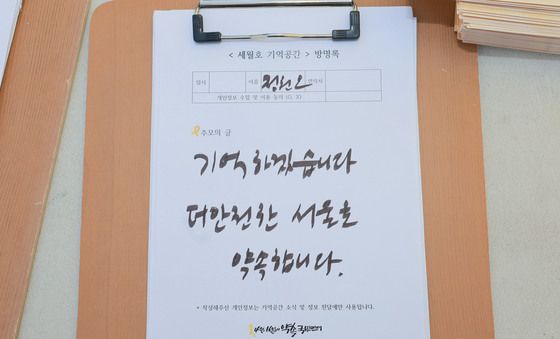 < 세월호 기억공간 > 방명록
일시 이름 정원오 연락처
개인정보 수집 및 이용 동의 (O, X)
추모의 글
기억하겠습니다
더안전한 서울을
약속합니다.
* 작성해주신 개인정보는 기억공간 소식 및 정보 전달에만 사용됩니다.